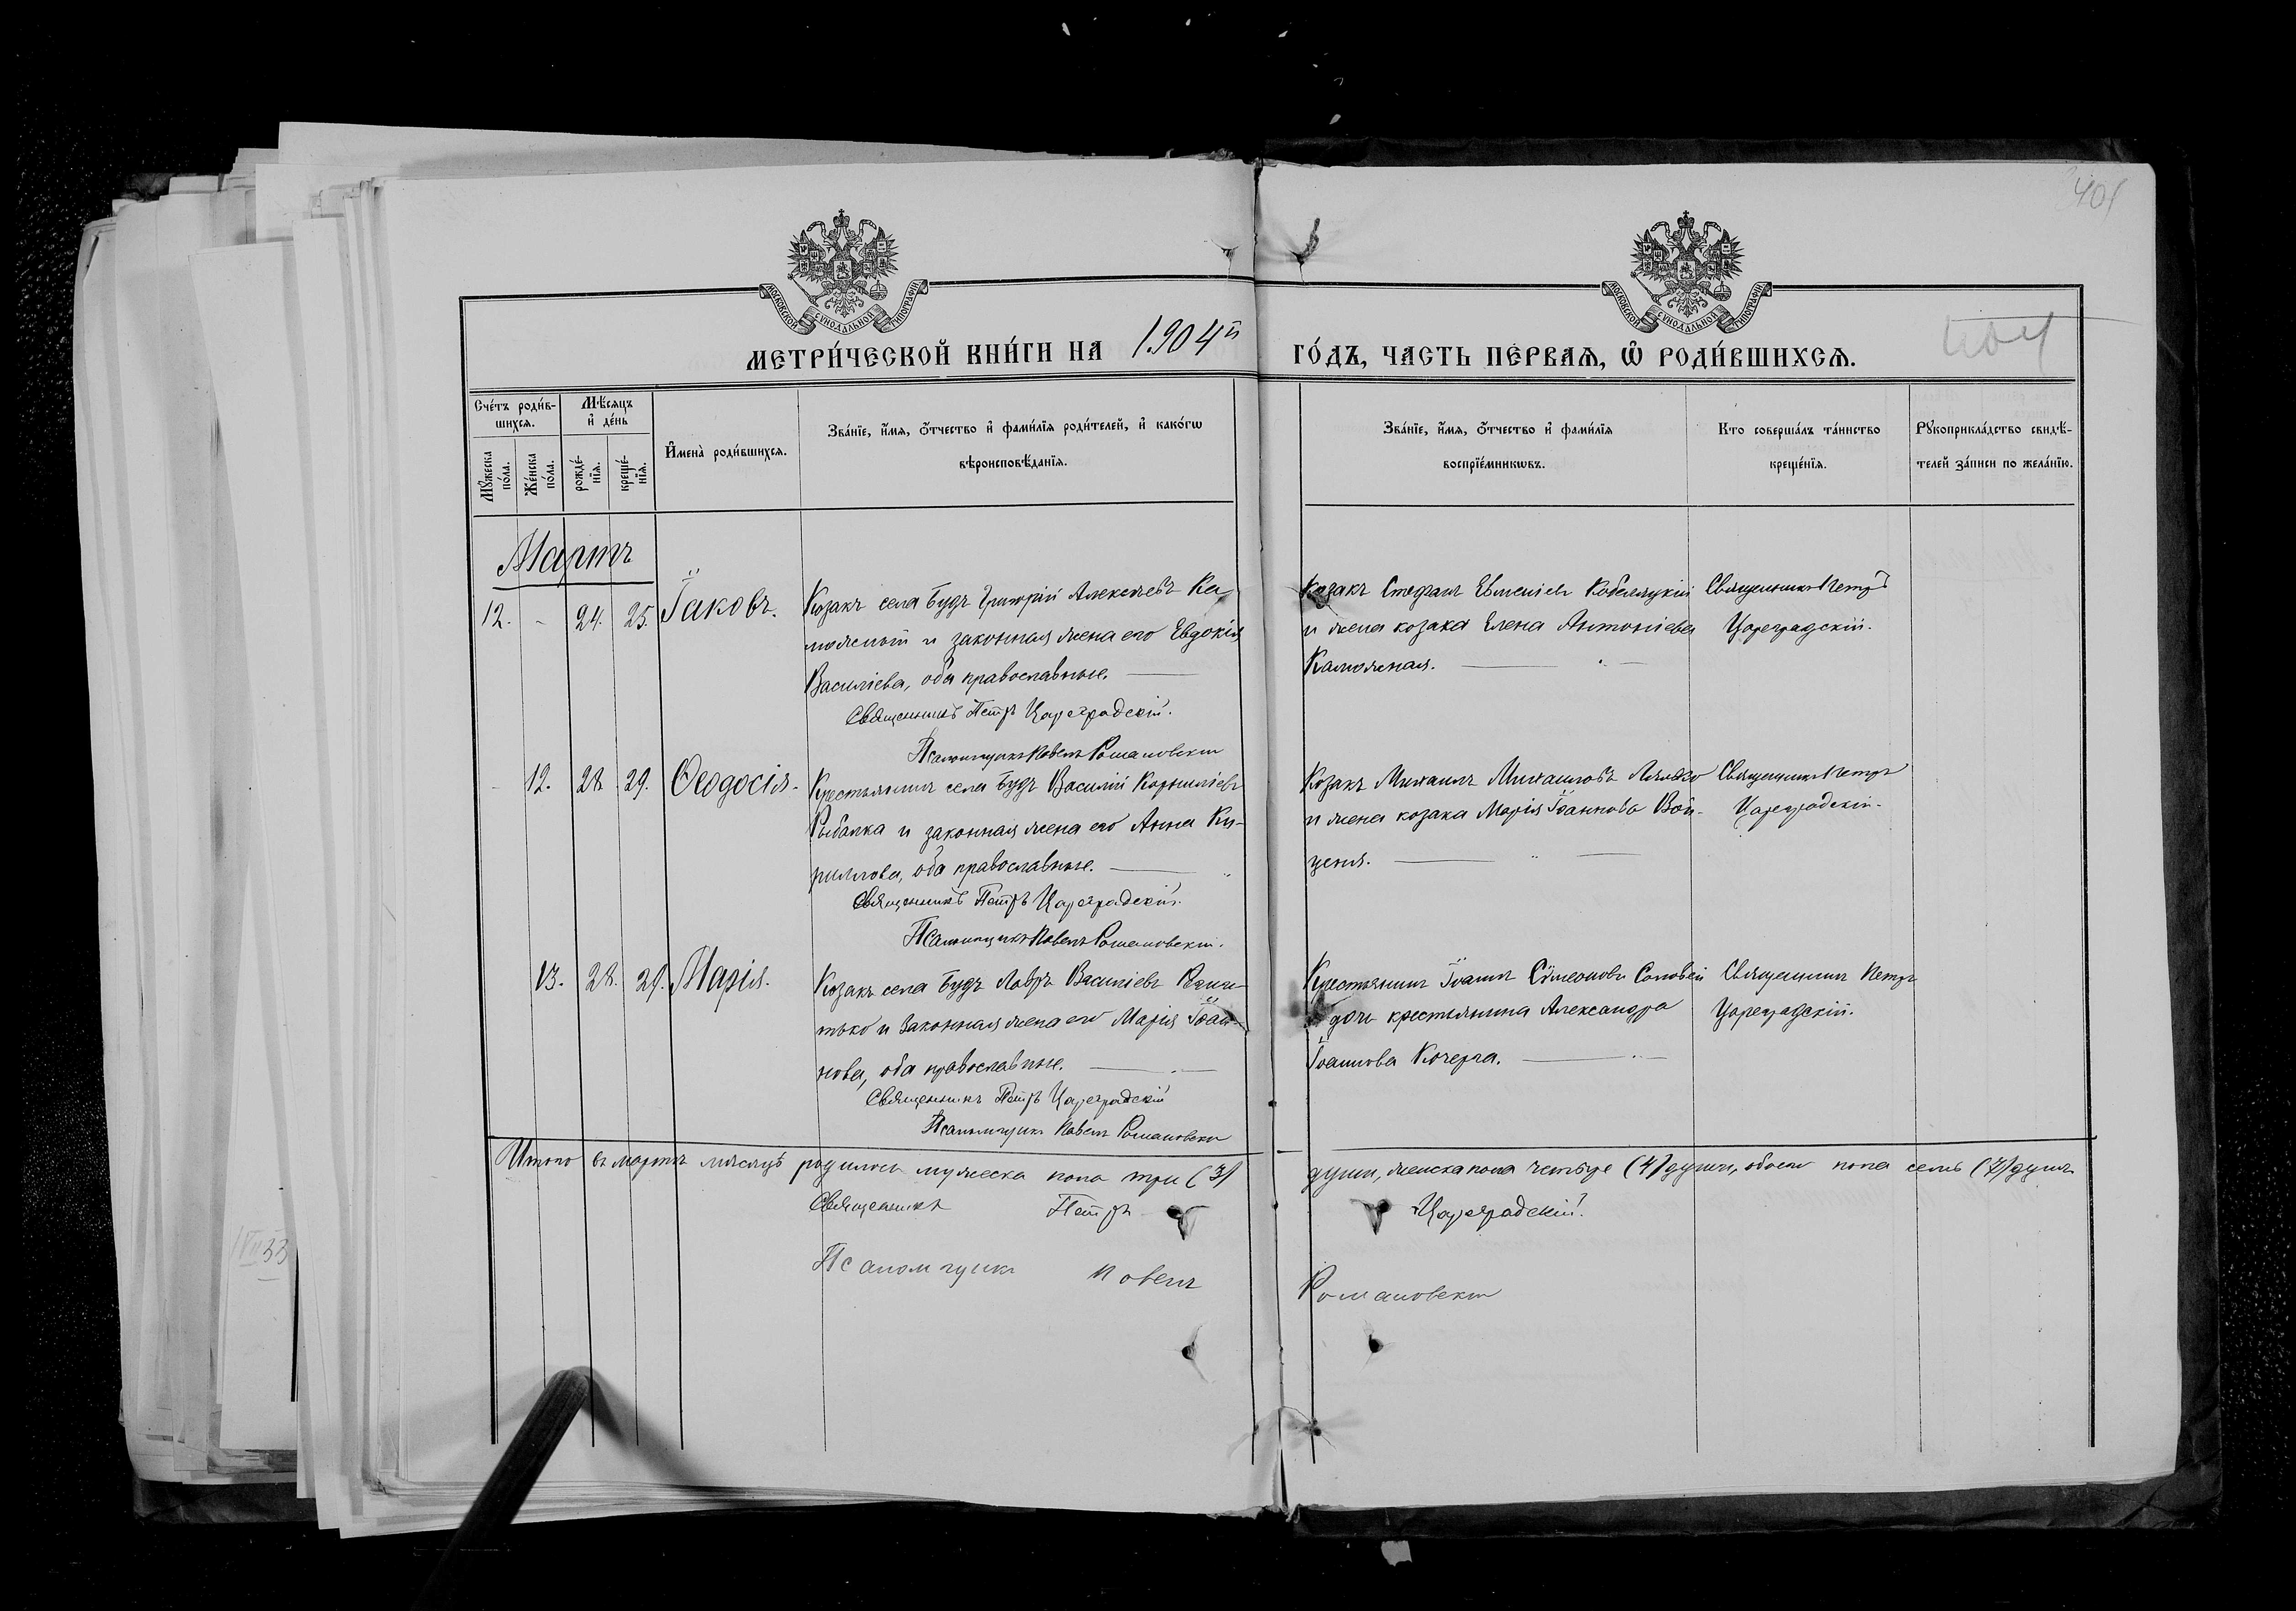 401
МОСКОВСКОЙ СУНОДАЛЬНОЙ ТИПОГРАФІИ
МОСКОВСКОЙ СУНОДАЛЬНОЙ ТИПОГРАФІИ
МЕТРИ́ЧЕСКОЙ КНИ́ГИ НА 1904й ГО́ДЪ, ЧАСТЬ ПЕ́РВАЯ, Ѿ РОДИ́ВШИХСѦ.
Сче́тъ роди́в-
шихсѧ.
Мꙋ́жеска
по́ла.
Же́нска
по́ла.
Мѣ́сяцъ
и҆ де́нь
рожде́-
нїѧ.
креще́-
нїѧ.
И҆мена̀ роди́вшихсѧ.
Зва́нїе, и҆́мѧ, ѻ҆́тчество и҆ фами́лїѧ роди́телей, и҆ како́гѡ
вѣроисповѣ́данїѧ.
Зва́нїе, и҆́мѧ, ѻ҆́тчество и҆ фами́лїѧ
воспрїе́мникѡвъ.
Кто̀ соверша́лъ та́инство
креще́нїѧ.
Рꙋкоприкла́дство свидѣ́-
телей за́писи по жела́нїю.
Мартъ
12. - 24. 25. Іаковъ.
Козакъ села Будъ Григорій Алексѣевъ Ка-
и законная жена его Евдокія
Василіева, оба православные.
Священникъ Петръ Цареградскій.
Псаломщикъ Павелъ Романовскій
Козакъ Стефанъ Евменіевъ Кобеляцкій
и жена козака Елена Антоніева
Священникъ Петръ
Цареградскій.
- 12. 28. 29. Ѳеодосія.
Крестьянинъ села Будъ Василій Корниліевъ
Рыбалка и законная жена его Анна Ки-
риллова, оба православные.
Священникъ Петръ Цареградскій.
Псаломщикъ Павелъ Романовскій.
Козакъ Михаилъ Михаиловъ
и жена козака Марія Іоаннова Вой-
ценя.
Священникъ Петръ
Цареградскій.
13. 28. 29. Марія.
Козакъ села Будъ Лавръ Василіевъ
и законная жена его Марія Іоан-
нова, оба православные.
Священникъ Петръ Цареградскій
Псаломщикъ Павелъ Романовскій
Крестьянинъ Іоаннъ Сѵмеоновъ Соловей
дочь крестьянина Александра
Іоаннова Кочерга.
Священникъ Петръ
Цареградскій.
Итого въ мартѣ мѣсяцѣ родилось мужеска пола три (3) души, женска пола четыре (4) души, обоего пола семь (7) душъ
Священникъ Петръ Цареградскій.
Псаломщикъ Павелъ Романовскій